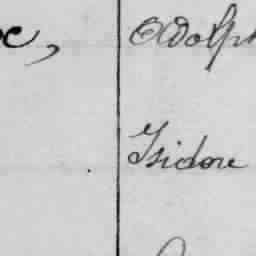 Adolph
Isidore